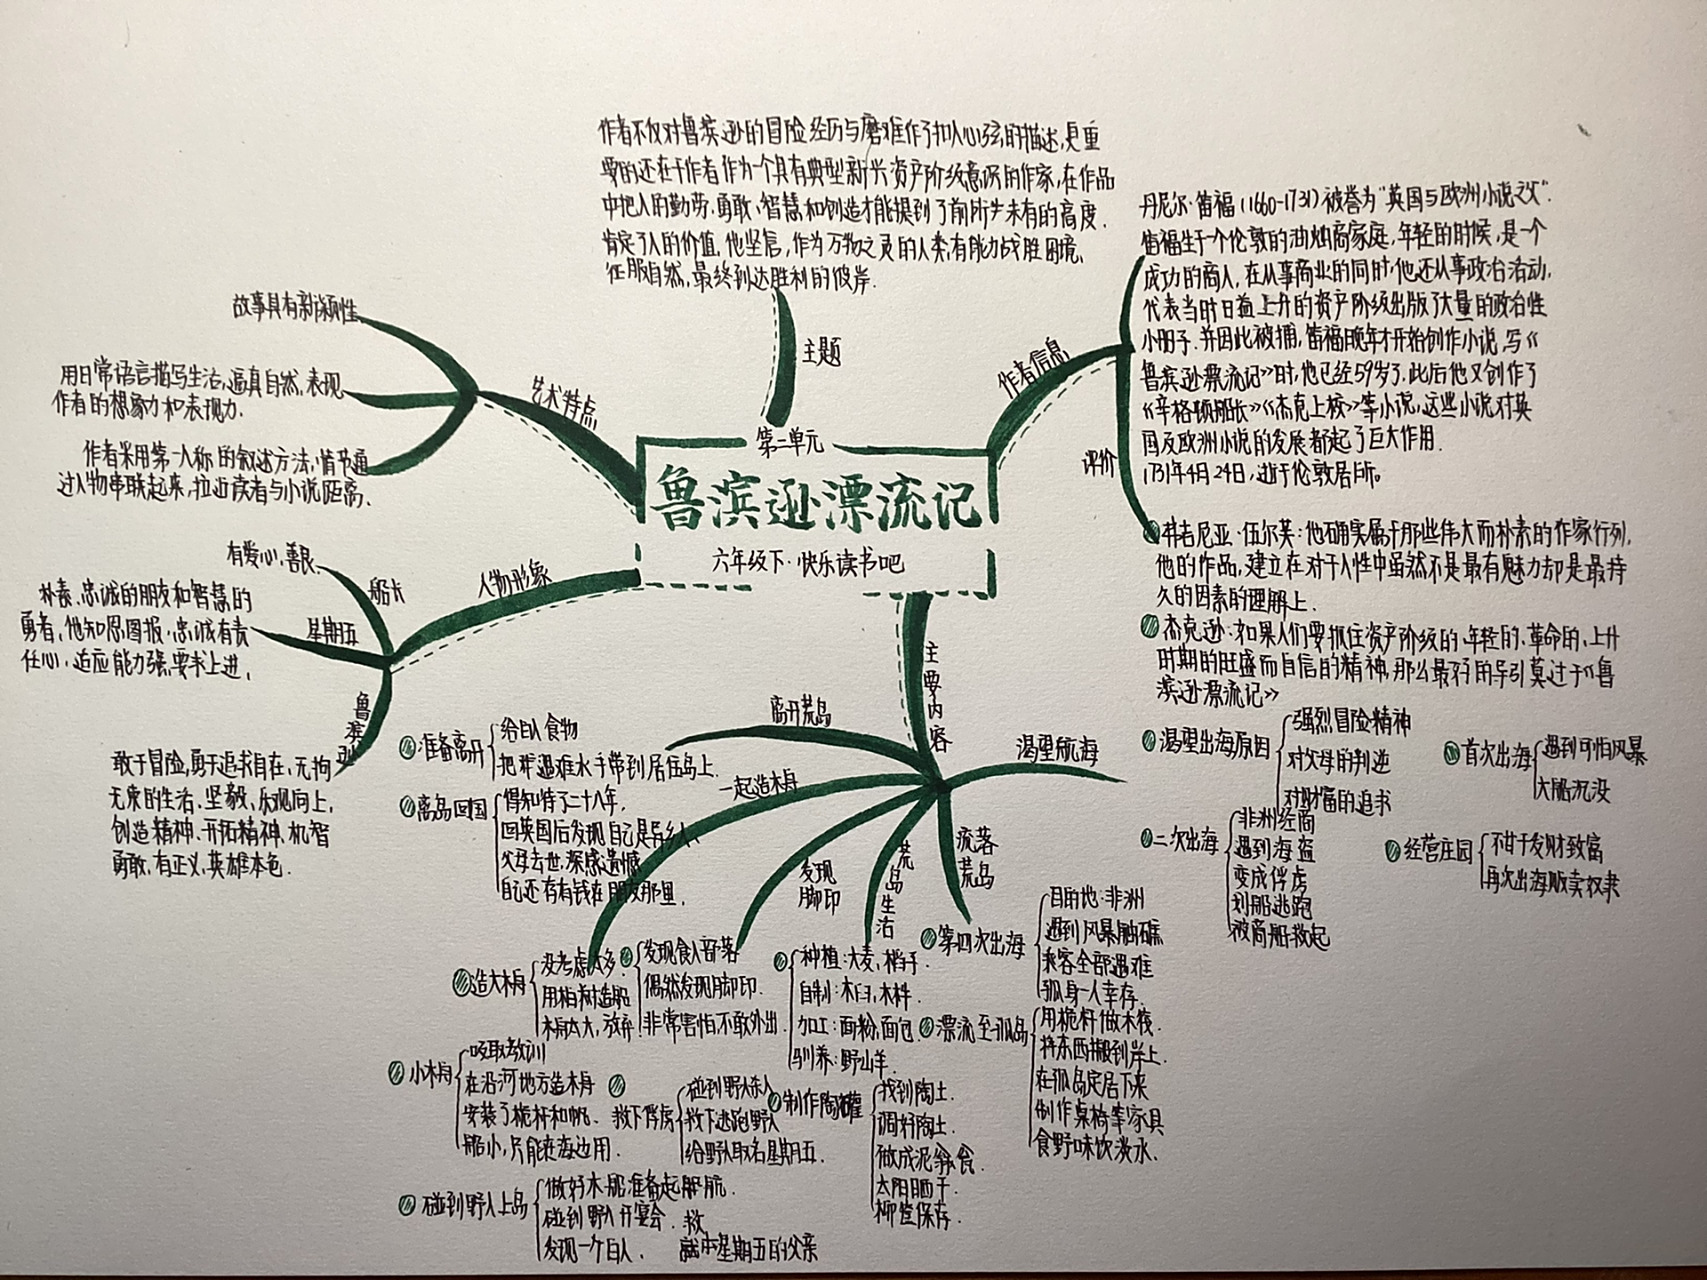 作者不仅对鲁滨逊的冒险经历与磨难作了扣人心弦的描述,更重
要的还在于作者作为一个具有典型新兴资产阶级意识的作家,在作品
中把人的勤劳、勇敢、智慧和创造才能提到了前所未有的高度.
肯定了人的价值.他坚信,作为万物之灵的人类,有能力战胜困境、
征服自然,最终到达胜利的彼岸.
主题
丹尼尔·笛福(1660-1731)被誉为"英国与欧洲小说之父".
笛福生于一个伦敦的油烛商家庭,年轻的时候,是一个
成功的商人,在从事商业的同时,他还从事政治活动,
代表当时日益上升的资产阶级出版了大量的政治性
小册子.并因此被捕,笛福晚年才开始创作小说,写《
鲁滨逊漂流记》时,他已经59岁了,此后他又创作了
《辛格顿船长》《杰克上校》等小说,这些小说对英
国及欧洲小说的发展都起了巨大作用.
1731年4月24日,逝于伦敦居所。
作者信息
评价
弗吉尼亚·伍尔芙:他确实属于那些伟大而朴素的作家行列,
他的作品,建立在对于人性中虽然不是最有魅力却是最持
久的因素的理解上.
杰克逊:如果人们要抓住资产阶级的年轻的、革命的、上升
时期的旺盛而自信的精神,那么最好的导引莫过于《鲁
滨逊漂流记》
第二单元
鲁滨逊漂流记
六年级下·快乐读书吧
艺术特点
故事具有新颖性
用日常语言描写生活,逼真自然,表现
作者的想象力和表现力.
作者采用第一人称的叙述方法,情节通
过人物串联起来,拉近读者与小说距离.
人物形象
船长
有爱心,善良.
星期五
朴素、忠诚的朋友和智慧的
勇者,他知恩图报,忠诚有责
任心,适应能力强,要求上进.
鲁滨逊
敢于冒险,勇于追求自在,无拘
无束的生活.坚毅、乐观向上,
创造精神、开拓精神、机智
勇敢,有正义,英雄本色.
主要内容
渴望航海
渴望出海原因
强烈冒险精神
对父母的判逆
对财富的追求
首次出海
遇到可怕风暴
大船沉没
二次出海
非洲经商
遇到海盗
变成俘虏
划船逃跑
被商船救起
经营庄园
不甘于发财致富
再次出海贩卖奴隶
流落荒岛
第四次出海
目的地:非洲
遇到风暴触礁
乘客全部遇难
孤身一人幸存.
漂流至孤岛
用桅杆做木筏.
将东西搬到岸上.
在孤岛定居下来
制作桌椅等家具
食野味饮淡水.
荒岛生活
种植:大麦、稻子.
自制:木臼,木杵.
加工:面粉,面包.
驯养:野山羊.
制作陶罐
找到陶土.
调好陶土.
太阳晒干.
柳筐保存.
发现脚印
发现食人部落
偶然发现脚印.
非常害怕不敢外出.
救下俘虏
碰到野人杀人
救下逃跑野人
给野人取名星期五.
一起造木舟
造大木舟
没考虑太多.
用柏树造船
木舟太大,放弃
小木舟
吸取教训
在沿河地方造木舟
安装了桅杆和帆.
船小,只能在海边用.
碰到野人上岛
做好木船准备起航.
碰到野人开宴会.
发现一个白人.
救
星期五的父亲
离开荒岛
准备离开
给白人食物
把那遇难水手带到居住岛上.
离岛回国
得知待了二十八年.
回英国后发现自己是异乡人
父母去世,深感遗憾
自己还存有钱在朋友那里.